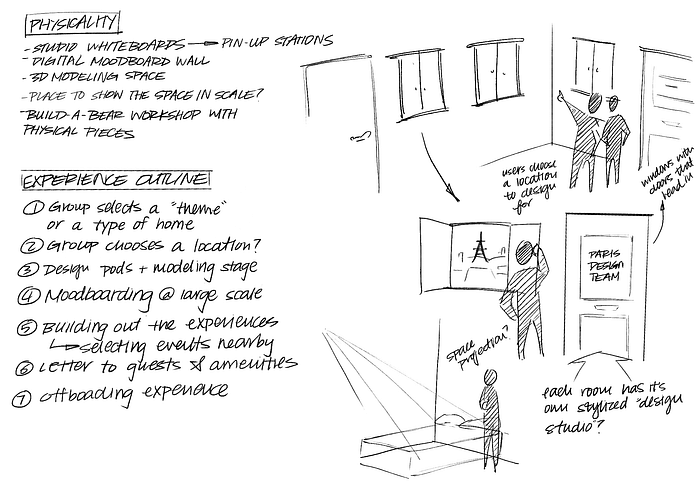 PHYSICALITY
- STUDIO WHITEBOARDS → PIN-UP STATIONS
- DIGITAL MOODBOARD WALL
- 3D MODELING SPACE
- PLACE TO SHOW THE SPACE IN SCALE?
- BUILD-A-BEAR WORKSHOP WITH
PHYSICAL PIECES
EXPERIENCE OUTLINE
① Group selects a "theme"
or a type of home
② Group chooses a location?
③ Design pods + modeling stage
④ Moodboarding @ large scale
⑤ Building out the experiences
↳ selecting events nearby
⑥ Letter to guests & amenities
⑦ Offboading experience
users choose
a location
to design
for
windows with
doors that
lead in
PARIS
DESIGN
TEAM
space
projection?
each room has it's
own stylized "design
studio"?